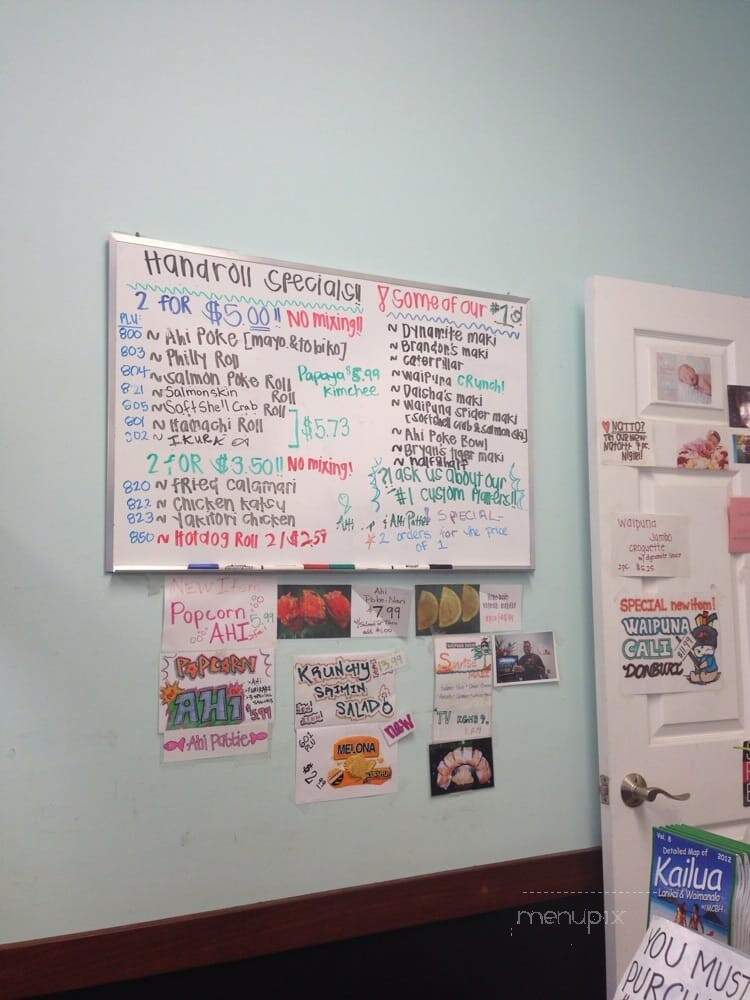 Handroll Specials!!
2 FOR $5.00!! NO mixing!!
PLU:
800 ~ Ahi Poke [mayo.&tobiko]
803 ~ Philly Roll
804 ~ Salmon Poke Roll
821 ~ Salmonskin Roll
805 ~ Softshell Crab Roll
801 ~ Hamachi Roll
802 ~ IKURA
$5.73
Papaya
kimchee
2 FOR $3.50!! NO mixing!
820 ~ fried calamari
822 ~ Chicken katsu
823 ~ Yakitori chicken
850 ~ Hotdog Roll 2/$2.59
! Some of our #1's
~ Dynamite maki
~ Brandon's maki
~ caterpillar
~ Waipuna CRunch!
~ Daisha's maki
~ Waipuna spider maki
[softshell crab & salmon ski]
~ Ahi Poke Bowl
~ Bryan's tiger maki
~ half&half
? ask us about our
#1 custom Platters!!
& Ahi Pattie! SPECIAL-
* 2 orders for the price
of 1
NEW Item
Popcorn
AHI
5.99
Ahi
Poke-Nari
$7.99
POPCORN
AHI
$5.99
Ahi Pattie
KRUNCHY $13.99
SAIMIN
SALAD
new
MELONA
Sunrise
Roll
NATTO?
Waipuna
Jumbo
croquette
w/dynamite sauce
SPECIAL new item!
WAIPUNA
CALI
DONBURI
Vol. 8
2012
Detailed Map of
Kailua
Lanikai & Waimanalo
MCBH
YOU MUST
PURCH
menupix